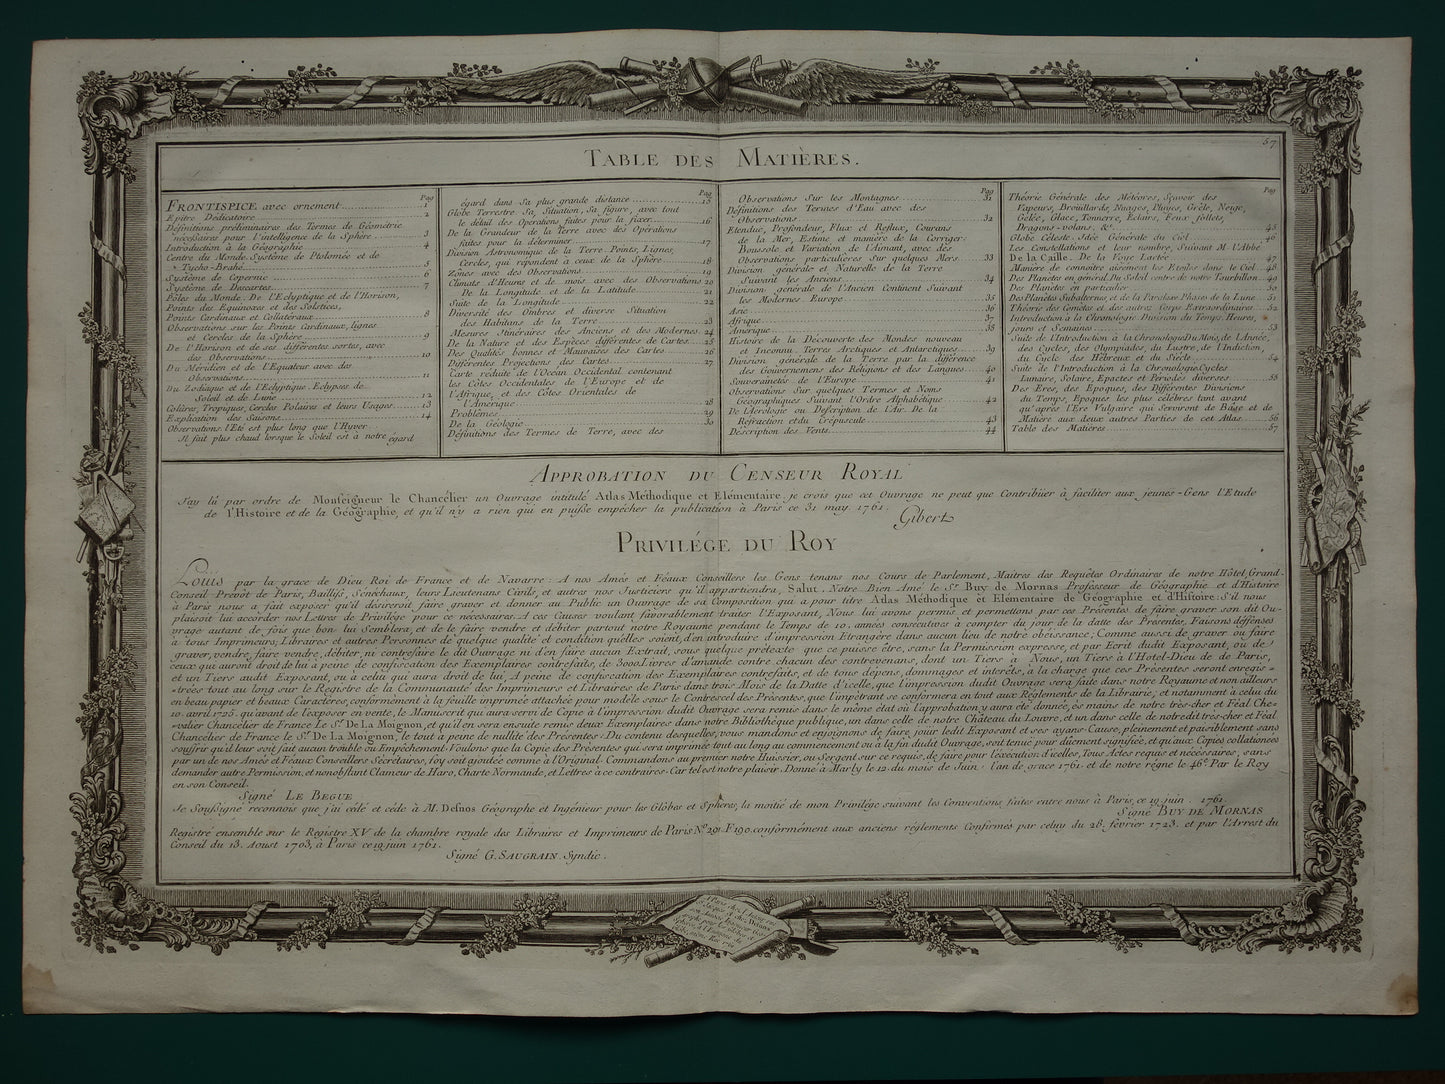 57
TABLE DES MATIÈRES.
Pag
FRONTISPICE avec ornement 1
Epitre Dédicatoire 2
Définitions préliminaires des Termes de Géométrie
nécessaires pour l'intelligence de la Sphère 3
Introduction à la Géographie 4
Centre du Monde. Système de Ptolomée et de
Tycho-Brahé 5
Système de Copernic 6
Système de Descartes 7
Pôles du Monde. De l'Ecliptique et de l'Horison,
Points des Equinoxes et des Solstices,
Points Cardinaux et Collatéraux 8
Observations sur les Points Cardinaux, lignes
et Cercles de la Sphère 9
De l'Horison et de ses différentes sortes, avec
des Observations 10
Du Méridien et de l'Equateur avec des
Observations 11
Du Zodiaque et de l'Ecliptique. Eclypses de
Soleil et de Lune 12
Colûres, Tropiques, Cercles Polaires et leurs Usages 13
Explication des Saisons 14
Observations l'Eté est plus long que l'Hyver.
Il fait plus chaud lorsque le Soleil est à notre égard
Pag
égard dans Sa plus grande distance 15
Globe Terrestre Sa Situation, Sa figure, avec tout
le détail des Opérations faites pour la fixer 16
De la Grandeur de la Terre avec des Opérations
faites pour la déterminer 17
Division Astronomique de la Terre. Points, Lignes,
Cercles, qui répondent à ceux de la Sphère 18
Zônes avec des Observations 19
Climats d'Heures et de mois avec des Observations 20
De la Longitude et de la Latitude 21
Suite de la Longitude 22
Diversité des Ombres et diverse Situation
des Habitans de la Terre 23
Mesures Itinéraires des Anciens et des Modernes 24
De la Nature et des Espèces différentes de Cartes 25
Des Qualités bonnes et Mauvaises des Cartes 26
Différentes Projections des Cartes 27
Carte réduite de l'Océan Occidental contenant
les Côtes Occidentales de l'Europe et de
l'Afrique, et des Côtes Orientales de
l'Amérique 28
Problêmes 29
De la Géologie 30
Définitions des Termes de Terre, avec des
Pag
Observations Sur les Montagnes 31
Définitions des Termes d'Eau avec des
Observations 32
Etendue, Profondeur, Flux et Reflux, Courans
de la Mer, Estime et manière de la Corriger.
Boussole et Variation de l'Aimant, avec des
Observations particulières Sur quelques Mers 33
Division générale et Naturelle de la Terre
Suivant les Anciens 34
Division générale de l'Ancien Continent Suivant
les Modernes. Europe 35
Asie 36
Afrique 37
Amérique 38
Histoire de la Découverte des Mondes nouveau
et Inconnu. Terres Arctiques et Antarctiques 39
Division générale de la Terre par la différence
des Gouvernemens des Religions et des Langues 40
Souverainetés de l'Europe 41
Observations Sur quelques Termes et Noms
Géographiques Suivant l'Ordre Alphabétique 42
De l'Aerologie ou Description de l'Air. De la
Réfraction et du Crépuscule 43
Description des Vents 44
Pag
Théorie Générale des Météores, Sçavoir des
Vapeurs, Brouillards, Nuages, Pluyes, Grêle, Neige,
Gélée, Glace, Tonnerre, Eclairs, Feux follets,
Dragons-volans, &c. 45
Globe Céleste. Idée Générale du Ciel 46
Les Constellations et leur nombre, Suivant M. l'Abbé
De la Caille. De la Voye Lactée 47
Manière de connoître aisément les Etoiles dans le Ciel 48
Des Planètes en général. Du Soleil centre de notre Tourbillon 49
Des Planètes en particulier 50
Des Planètes Subalternes et de la Paralaxe. Phases de la Lune 51
Théorie des Comètes et des autres Corps Extraordinaires 52
Introduction à la Chronologie. Division du Temps, Heures,
jours et Semaines 53
Suite de l'Introduction à la Chronologie. Du Mois, de l'Année,
des Cycles, des Olympiades, du Lustre, de l'Indiction,
du Cycle des Hébreux et du Siècle 54
Suite de l'Introduction à la Chronologie. Cycles
Lunaire, Solaire, Epactes et Périodes diverses 55
Des Eres, des Epoques, des Différentes Divisions
du Temps, Epoques les plus célèbres tant avant
qu'après l'Ere Vulgaire qui Serviront de Baze et de
Matière aux deux autres Parties de cet Atlas 56
Table des Matières 57
APPROBATION DU CENSEUR ROYAL
J'ay lû par ordre de Monseigneur le Chancelier un Ouvrage intitulé Atlas Méthodique et Elémentaire. je crois que cet Ouvrage ne peut que Contribüer à faciliter aux jeunes-Gens l'Etude
de l'Histoire et de la Géographie, et qu'il n'y a rien qui en puisse empêcher la publication à Paris ce 31 may. 1761.
Gibert
PRIVILÉGE DU ROY
Louis par la grace de Dieu Roi de France et de Navarre: A nos Amés et Féaux Conseillers les Gens tenans nos Cours de Parlement, Maîtres des Requêtes Ordinaires de notre Hôtel Grand-
Conseil Prévôt de Paris, Baillifs, Sénéchaux, leurs Lieutenans Civils, et autres nos Justiciers qu'il appartiendra, Salut. Notre Bien Amé le Sr. Buy de Mornas Professeur de Géographie et d'Histoire
à Paris nous a fait exposer qu'il désireroit faire graver et donner au Public un Ouvrage de sa Composition qui a pour titre Atlas Méthodique et Elémentaire de Géographie et d'Histoire. S'il nous
plaisoit lui accorder nos Lettres de Privilége pour ce nécessaires. A ces Causes voulant favorablement traiter l'Exposant, Nous lui avons permis et permettons par ces Présentes de faire graver son dit Ou-
vrage autant de fois que bon lui Semblera, et de le faire vendre et débiter partout notre Royaume pendant le Temps de 10. années consécutives à compter du jour de la datte des Présentes, Faisons défenses
à tous Imprimeurs, Libraires et autres Personnes de quelque qualité et condition qu'elles soient, d'en introduire d'impression Etrangère dans aucun lieu de notre obéissance; Comme aussi de graver ou faire
graver, vendre, faire vendre, débiter, ni contrefaire le dit Ouvrage ni d'en faire aucun Extrait, sous quelque prétexte que ce puisse être, sans la Permission expresse, et par Ecrit dudit Exposant, ou de
ceux qui auront droit de lui à peine de confiscation des Exemplaires contrefaits, de 3000. Livres d'amande contre chacun des contrevenans, dont un Tiers à Nous, un Tiers à l'Hotel-Dieu de de Paris,
et un Tiers audit Exposant, ou à celui qui aura droit de lui, A peine de confiscation des Exemplaires contrefaits, et de tous dépens, dommages et interêts, à la charge que ces Présentes seront enregis=
=trées tout au long sur le Registre de la Communauté des Imprimeurs et Libraires de Paris dans trois Mois de la Datte d'icelle, que l'impression dudit Ouvrage sera faite dans notre Royaume et non ailleurs
en beau papier et beaux Caractères, conformément à la feuille imprimée attachée pour modèle sous le Contrescel des Présentes, que l'impétrant se conformera en tout aux Réglements de la Librairie, et notamment à celui du
10. avril 1725. qu'avant de l'exposer en vente, le Manuscrit qui aura servi de Copie à l'impression dudit Ouvrage sera remis dans le même état où l'approbation y aura été donnée, ès mains de notre très-cher et Féal Che-
valier Chancelier de France Le Sr. De La Moignon, et qu'il en sera ensuite remis deux Exemplaires dans notre Bibliothéque publique, un dans celle de notre Château du Louvre, et un dans celle de notredit très-cher et Féal
Chancelier de France le Sr. De La Moignon, le tout à peine de nullité des Présentes: Du contenu desquelles, vous mandons et enjoignons de faire jouir ledit Exposant et ses ayans-Cause, pleinement et paisiblement sans
souffrir qu'il leur soit fait aucun trouble ou Empêchement. Voulons que la Copie des Présentes qui sera imprimée tout au long au commencement ou à la fin dudit Ouvrage, soit tenue pour dûement signifiée, et qu'aux Copies collationées
par un de nos Amés et Féaux Conseillers Sécrétaires, foy soit ajoutée comme à l'Original. Commandons au premier notre Huissier, ou Sergent sur ce requis, de faire pour l'éxécution d'icelles, Tous Actes requis et nécéssaires, sans
demander autre Permission, et nonobstant Clameur de Haro, Charte Normande, et Lettres à ce contraires. Car tel est notre plaisir. Donné à Marly le 12. du mois de Juin: l'an de grace 1761. et de notre régne le 46e. Par le Roy
en son Conseil.
Signé LE BEGUE
Je Soussigné reconnois que j'ai cédé et céde à M. Desnos Géographe et Ingénieur pour les Globes et Spheres, la moitié de mon Privilége suivant les Conventions faites entre nous à Paris, ce 19 juin. 1761.
Signé BUY DE MORNAS
Registré ensemble sur le Registre XV de la chambre royale des Libraires et Imprimeurs de Paris No. 291. F. 190. conformément aux anciens réglements Confirmés par celuy du 28. février 1723. et par l'Arrest du
Conseil du 13. Aoust 1703, à Paris ce 19 juin 1761.
Signé G. SAUGRAIN. Syndic.